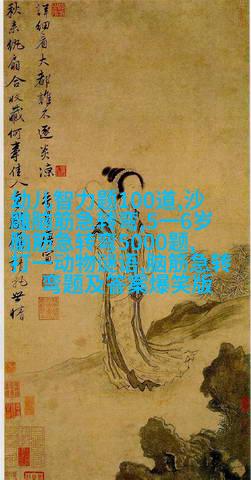 秋来紈扇合收藏何事佳人
世情
詳細看大都誰不逐炎凉
幼儿智力题100道,沙
雕脑筋急转弯,5—6岁
脑筋急转弯5000题,
打一动物谜语,脑筋急转
弯题及答案爆笑版